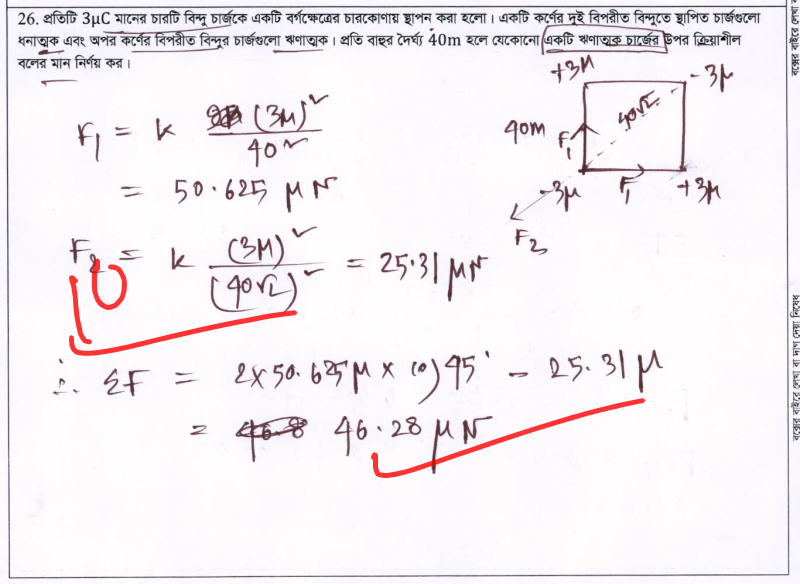 26. প্রতিটি 3μC মানের চারটি বিন্দু চার্জকে একটি বর্গক্ষেত্রের চারকোণায় স্থাপন করা হলো। একটি কর্ণের দুই বিপরীত বিন্দুতে স্থাপিত চার্জগুলো
ধনাত্মক এবং অপর কর্ণের বিপরীত বিন্দুর চার্জগুলো ঋণাত্মক। প্রতি বাহুর দৈর্ঘ্য 40m হলে যেকোনো একটি ঋণাত্মক চার্জের উপর ক্রিয়াশীল
বলের মান নির্ণয় কর।
+3μ
-3μ
40m
40√2
F₁
-3μ
F₁
+3μ
F₂
F₁ = k (3μ)² / 40²
= 50.625 μN
F₂ = k (3μ)² / (40√2)² = 25.31 μN
∴ ΣF = 2×50.625μ × cos 45° - 25.31 μ
= 46.28 μN
বক্সের বাইরে লেখা বা দাগ দেয়া নিষেধ